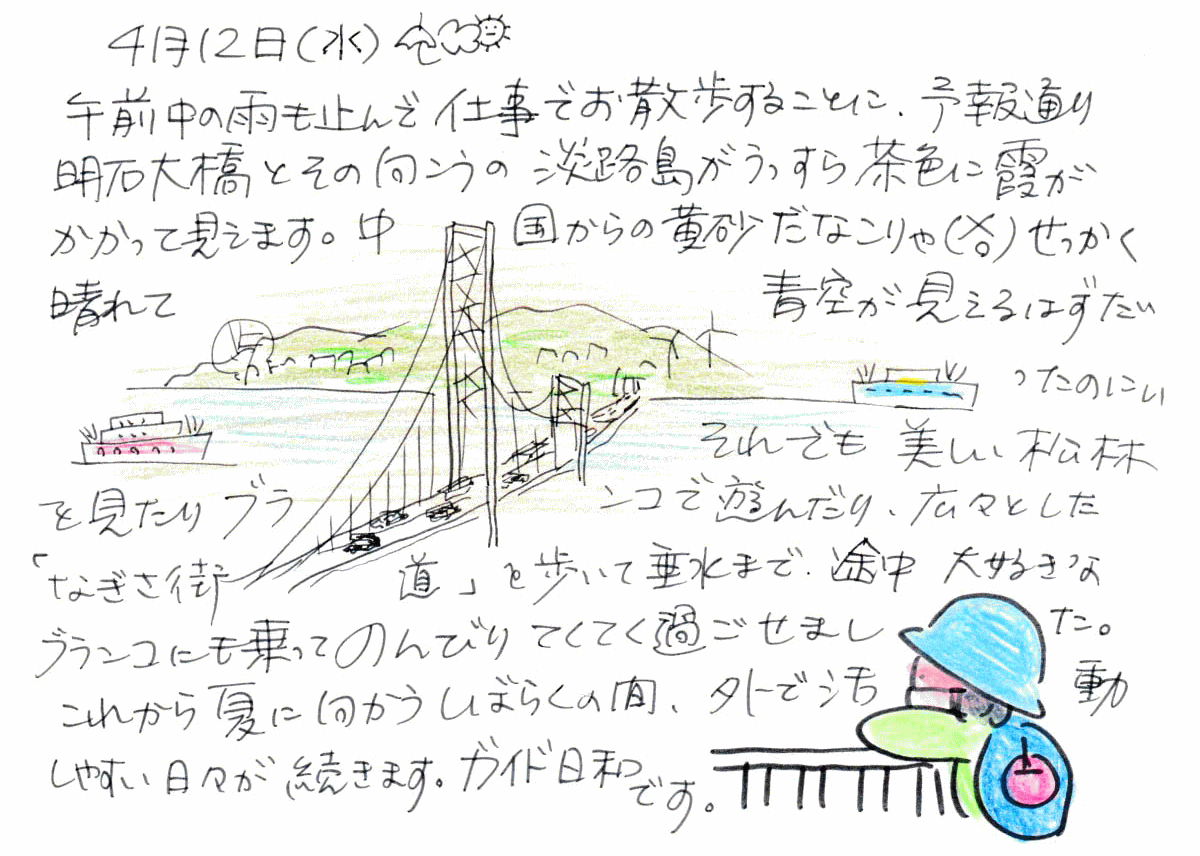 4月12日(水)
午前中の雨も止んで仕事でお散歩することに、予報通り
明石大橋とその向こうの淡路島がうっすら茶色に霞が
かかって見えます。中国からの黄砂だなこりゃ( )せっかく
晴れて青空が見えるはずだい
ったのにい
それでも美しい松林
を見たりブランコで遊んだり、広々とした
「なぎさ街道」を歩いて垂水まで、途中大好きな
ブランコにも乗ってのんびりてくてく過ごせました。
これから夏に向かうしばらくの間、外で活動
しやすい日々が続きます。ガイド日和です。